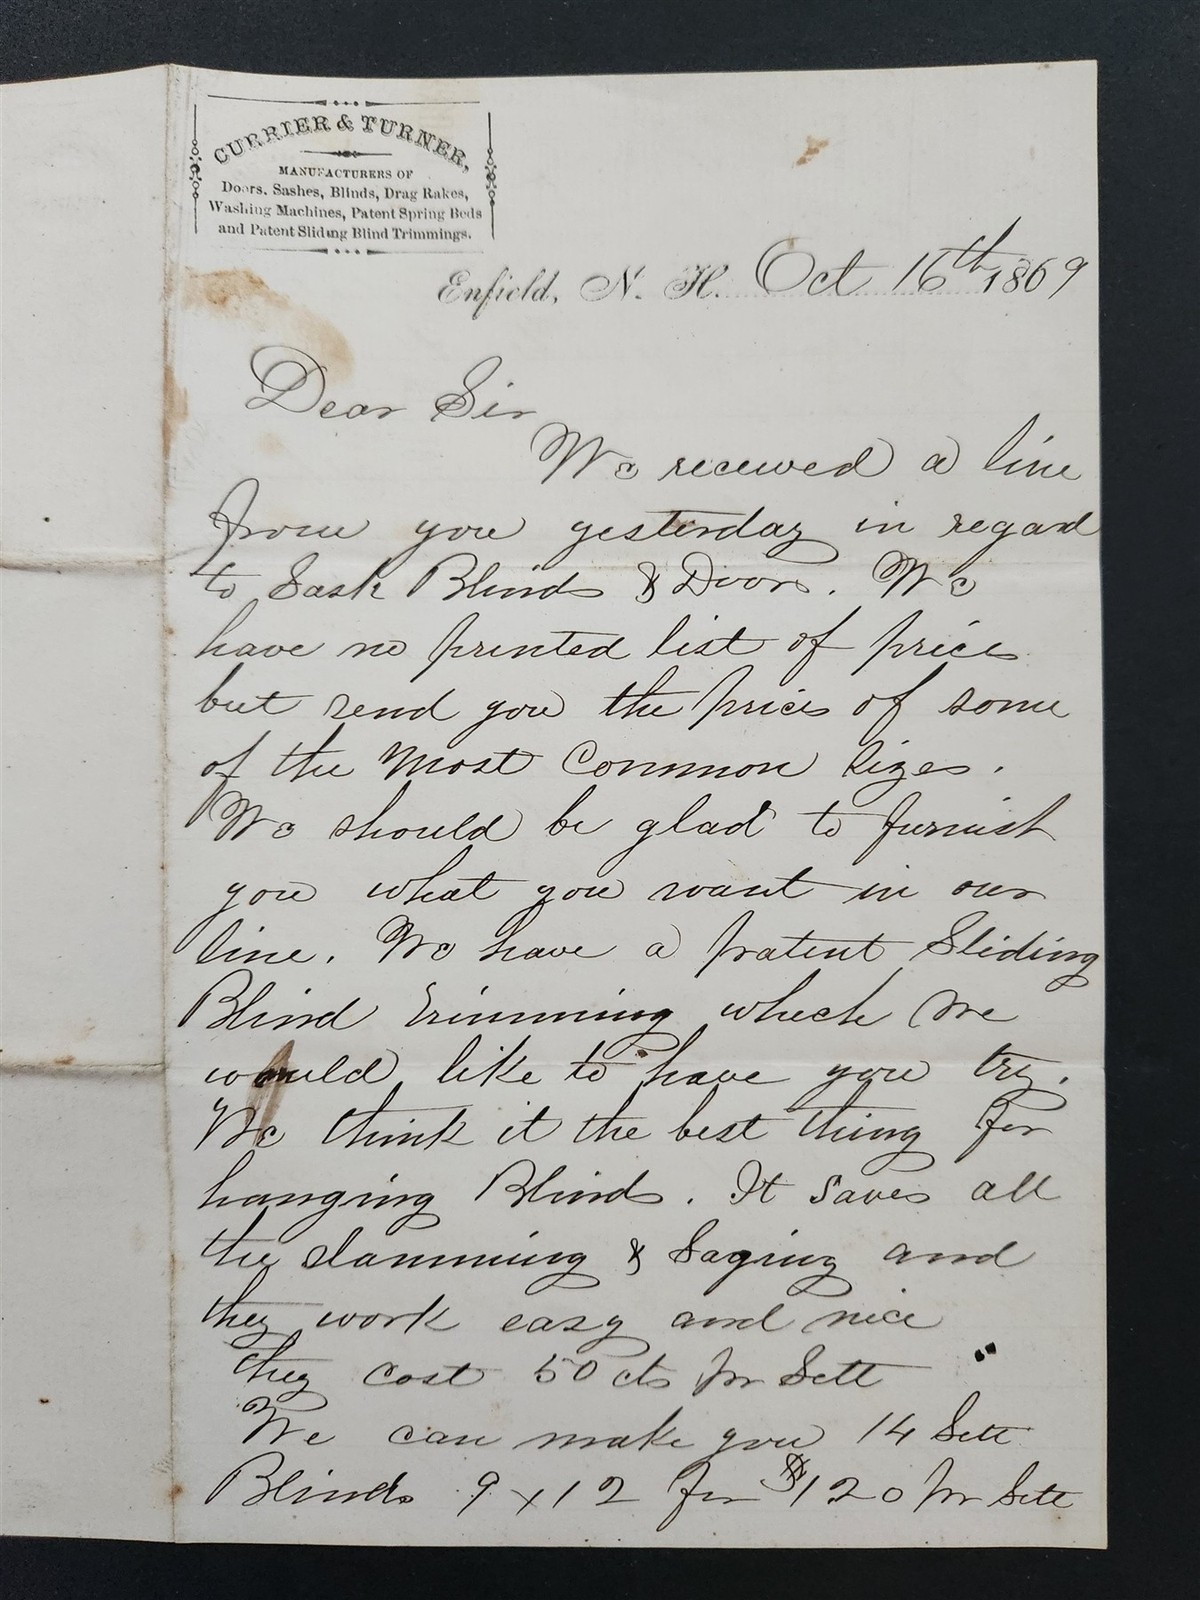 CURRIER & TURNER,
MANUFACTURERS OF
Doors, Sashes, Blinds, Drag Rakes,
Washing Machines, Patent Spring Beds
and Patent Sliding Blind Trimmings.
Enfield, N. H. Oct 16th 1869
Dear Sir
We received a line
from you yesterday in regard
to Sash Blinds & Doors. We
have no printed list of prices
but send you the prices of some
of the Most Common Sizes.
We should be glad to furnish
you what you want in our
line. We have a patent Sliding
Blind Trimming which we
would like to have you try.
We think it the best thing for
hanging Blinds. It Saves all
the slamming & Saging and
they work easy and nice
they cost 50 cts pr Sett "
We can make you 14 Sett
Blinds 9 x 12 for $120 pr Sett